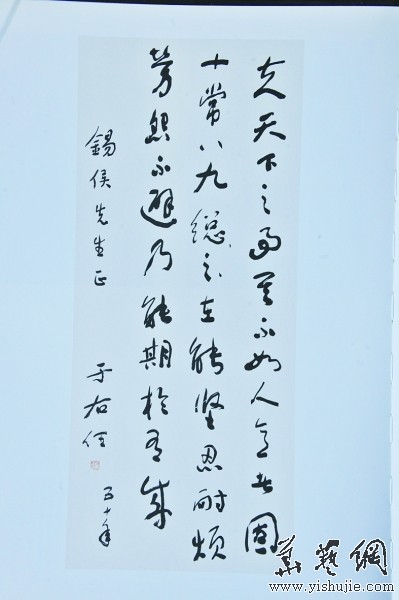 夫天下之事其不如人意者固
十常八九總之在能堅忍耐煩
勞怨不避乃能期於有成
錫侯先生正
于右任
五十年
華藝網
www.yishujie.com